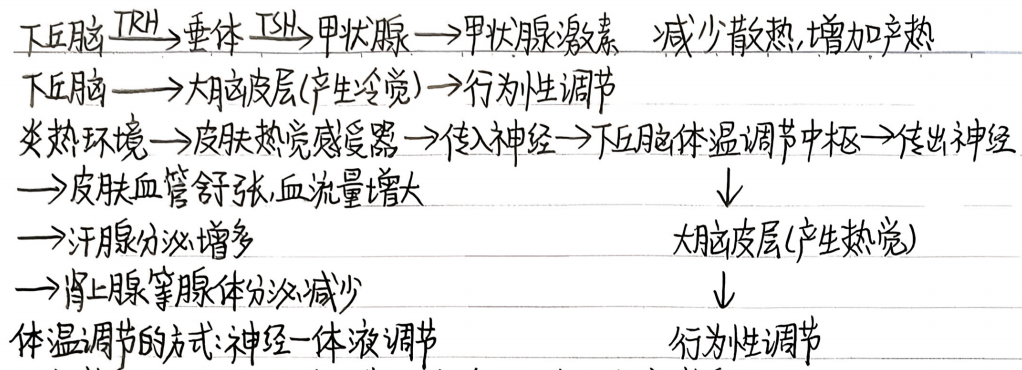 下丘脑 TRH→垂体 TSH→甲状腺→甲状腺激素 减少散热,增加产热
下丘脑→大脑皮层(产生冷觉)→行为性调节
炎热环境→皮肤热觉感受器→传入神经→下丘脑体温调节中枢→传出神经
→皮肤血管舒张,血流量增大 ↓
→汗腺分泌增多 大脑皮层(产生热觉)
→肾上腺等腺体分泌减少 ↓
体温调节的方式:神经一体液调节 行为性调节